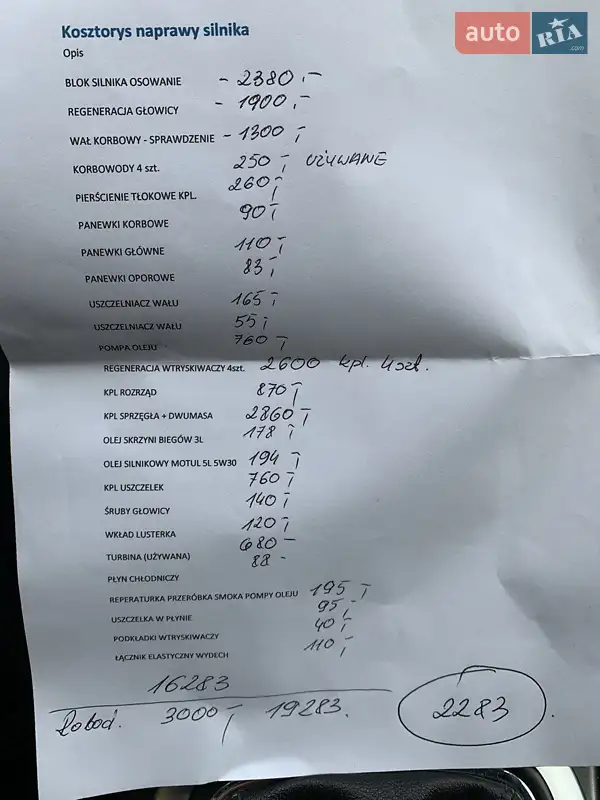 Kosztorys naprawy silnika
auto RIA .com
Opis
BLOK SILNIKA OSOWANIE - 2380,-
REGENERACJA GŁOWICY - 1900,-
WAŁ KORBOWY - SPRAWDZENIE - 1300,-
KORBOWODY 4 szt. 250,- UŻYWANE
PIERŚCIENIE TŁOKOWE KPL. 260,-
PANEWKI KORBOWE 90,-
PANEWKI GŁÓWNE 110,-
PANEWKI OPOROWE 83,-
USZCZELNIACZ WAŁU 165,-
USZCZELNIACZ WAŁU 55,-
POMPA OLEJU 760,-
REGENERACJA WTRYSKIWACZY 4szt. 2600 kpl. 4szt.
KPL ROZRZĄD 870,-
KPL SPRZĘGŁA + DWUMASA 2860,-
OLEJ SKRZYNI BIEGÓW 3L 178,-
OLEJ SILNIKOWY MOTUL 5L 5W30 194,-
KPL USZCZELEK 760,-
ŚRUBY GŁOWICY 140,-
WKŁAD LUSTERKA 120,-
TURBINA (UŻYWANA) 680 -
PŁYN CHŁODNICZY 88 -
REPERATURKA PRZERÓBKA SMOKA POMPY OLEJU 195,-
USZCZELKA W PŁYNIE 95,-
PODKŁADKI WTRYSKIWACZY 40,-
ŁĄCZNIK ELASTYCZNY WYDECH 110,-
16283
Roboć. 3000,- 19283.
2283